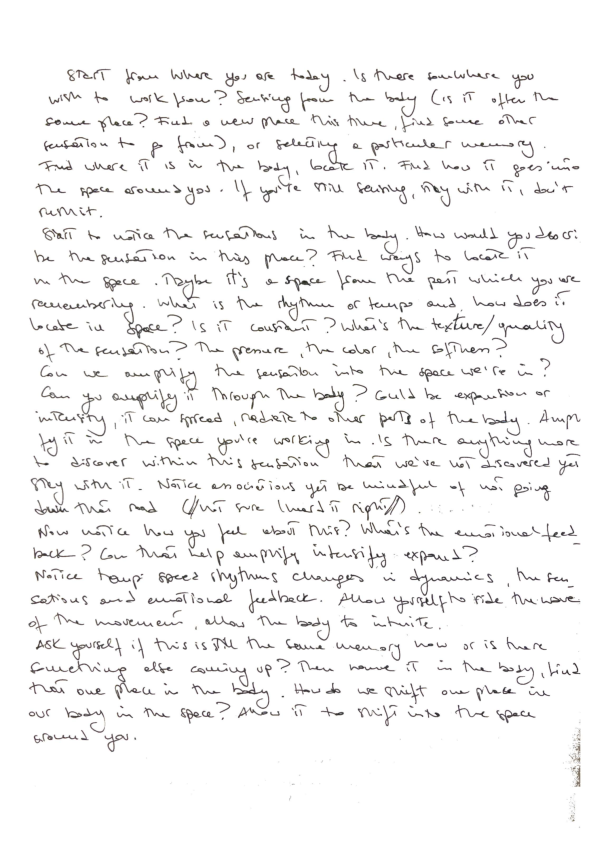 Start from where you are today. Is there somewhere you
wish to work from? Sensing from the body (is it often the
same place? Find a new place this time, find some other
sensation to go from), or selecting a particular memory.
Find where it is in the body, locate it. Find how it goes into
the space around you. If you're still sensing, stay with it, don't
rush it.
Start to notice the sensations in the body. How would you descri
be the sensation in this place? Find ways to locate it
in the space. Maybe it's a space from the past which you are
remembering. What is the rhythm or tempo and, how does it
locate in space? Is it constant? What's the texture/quality
of the sensation? The pressure, the color, the softness?
Can we amplify the sensation into the space we're in?
Can you amplify it through the body? Could be expansion or
intensity, it can spread, radiate to other parts of the body. Ampli
fy it in the space you're working in. Is there anything more
to discover within this sensation that we've not discovered yet
Stay with it. Notice associations yet be mindful of not going
down that road (//not sure I heard it right//) . . . . . .
Now notice how you feel about this? What's the emotional feed
back? Can that help amplify intensify expand?
Notice temp speed rhythms changes in dynamics, the sen
sations and emotional feedback. Allow yourself to ride the wave
of the movement, allow the body to intuite.
Ask yourself if this is still the same memory now or is there
something else coming up? Then name it in the body, find
that one place in the body. How do we shift one place in
our body in the space? Allow it to shift into the space
around you.